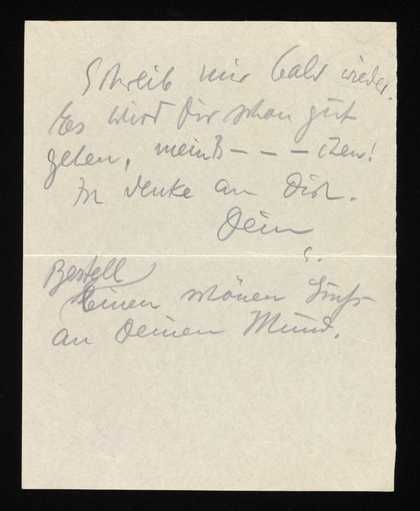 Schreib mir bald wieder.
Es wird Dir schon gut
gehen, mein B – – – chen!
Ich denke an Dich.
Dein
Bestell
einen schönen Gruß
an Deinen Mund.